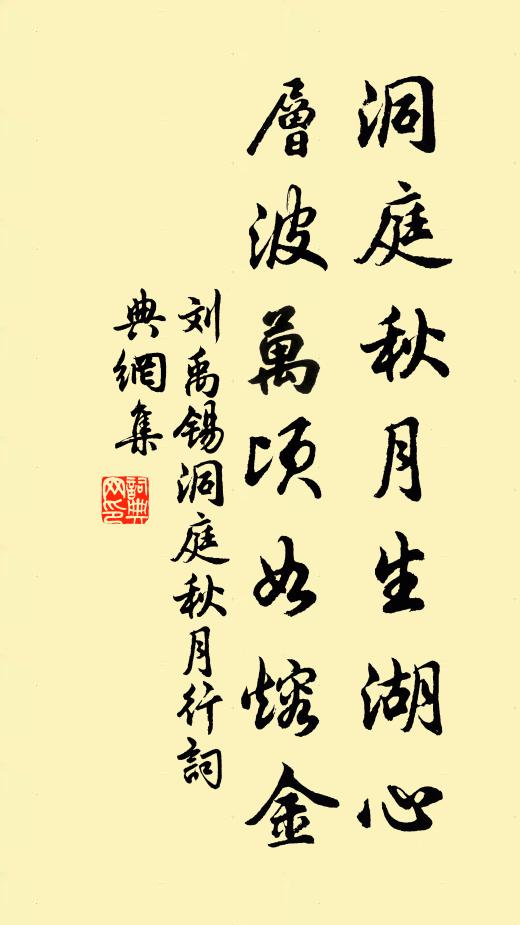 洞庭秋月生湖心
層波萬頃如熔金
刘禹锡洞庭秋月行詞
典網集
詞典网印